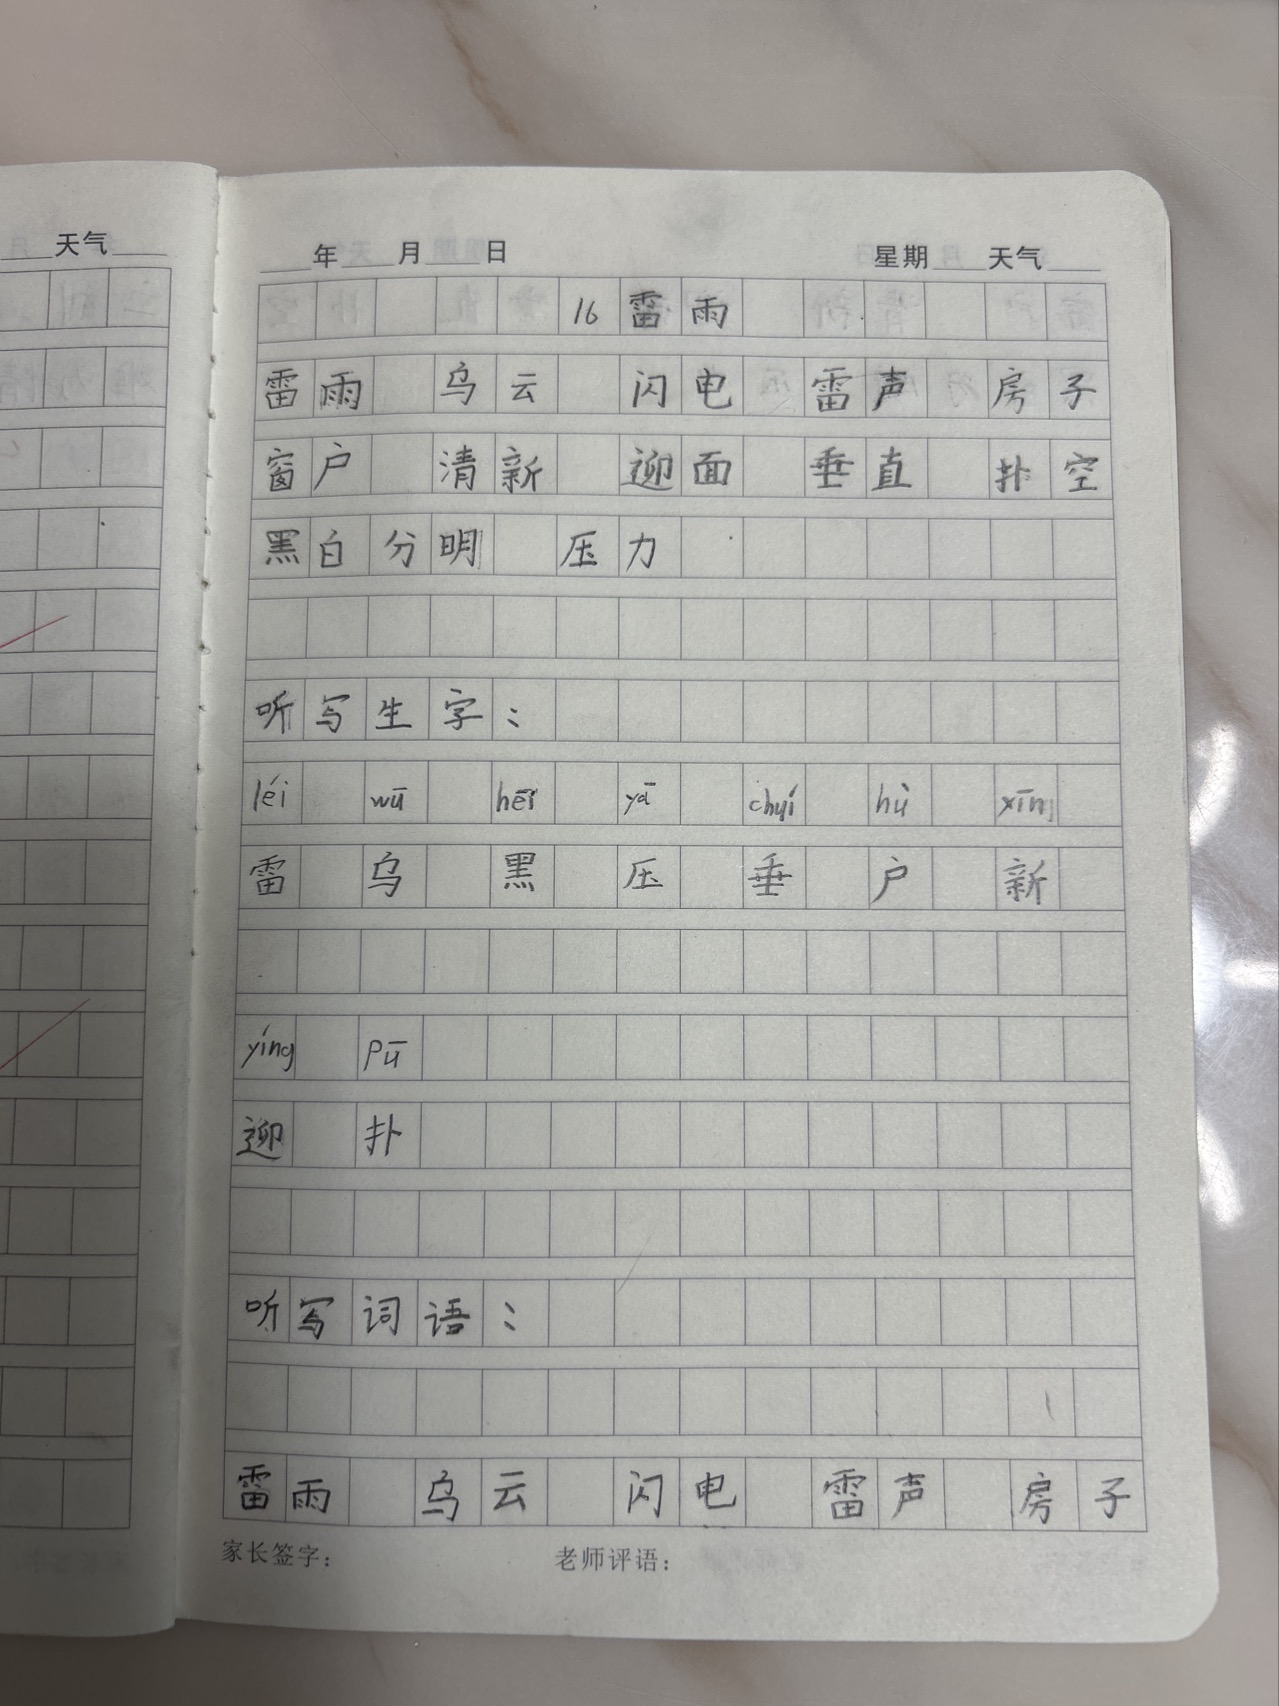 天气
年 月 日 星期 天气
16 雷雨
雷雨 乌云 闪电 雷声 房子
窗户 清新 迎面 垂直 扑空
黑白分明 压力
听写生字：
léi wū hēi yā chuí hù xīn
雷 乌 黑 压 垂 户 新
yíng pū
迎 扑
听写词语：
雷雨 乌云 闪电 雷声 房子
家长签字： 老师评语：